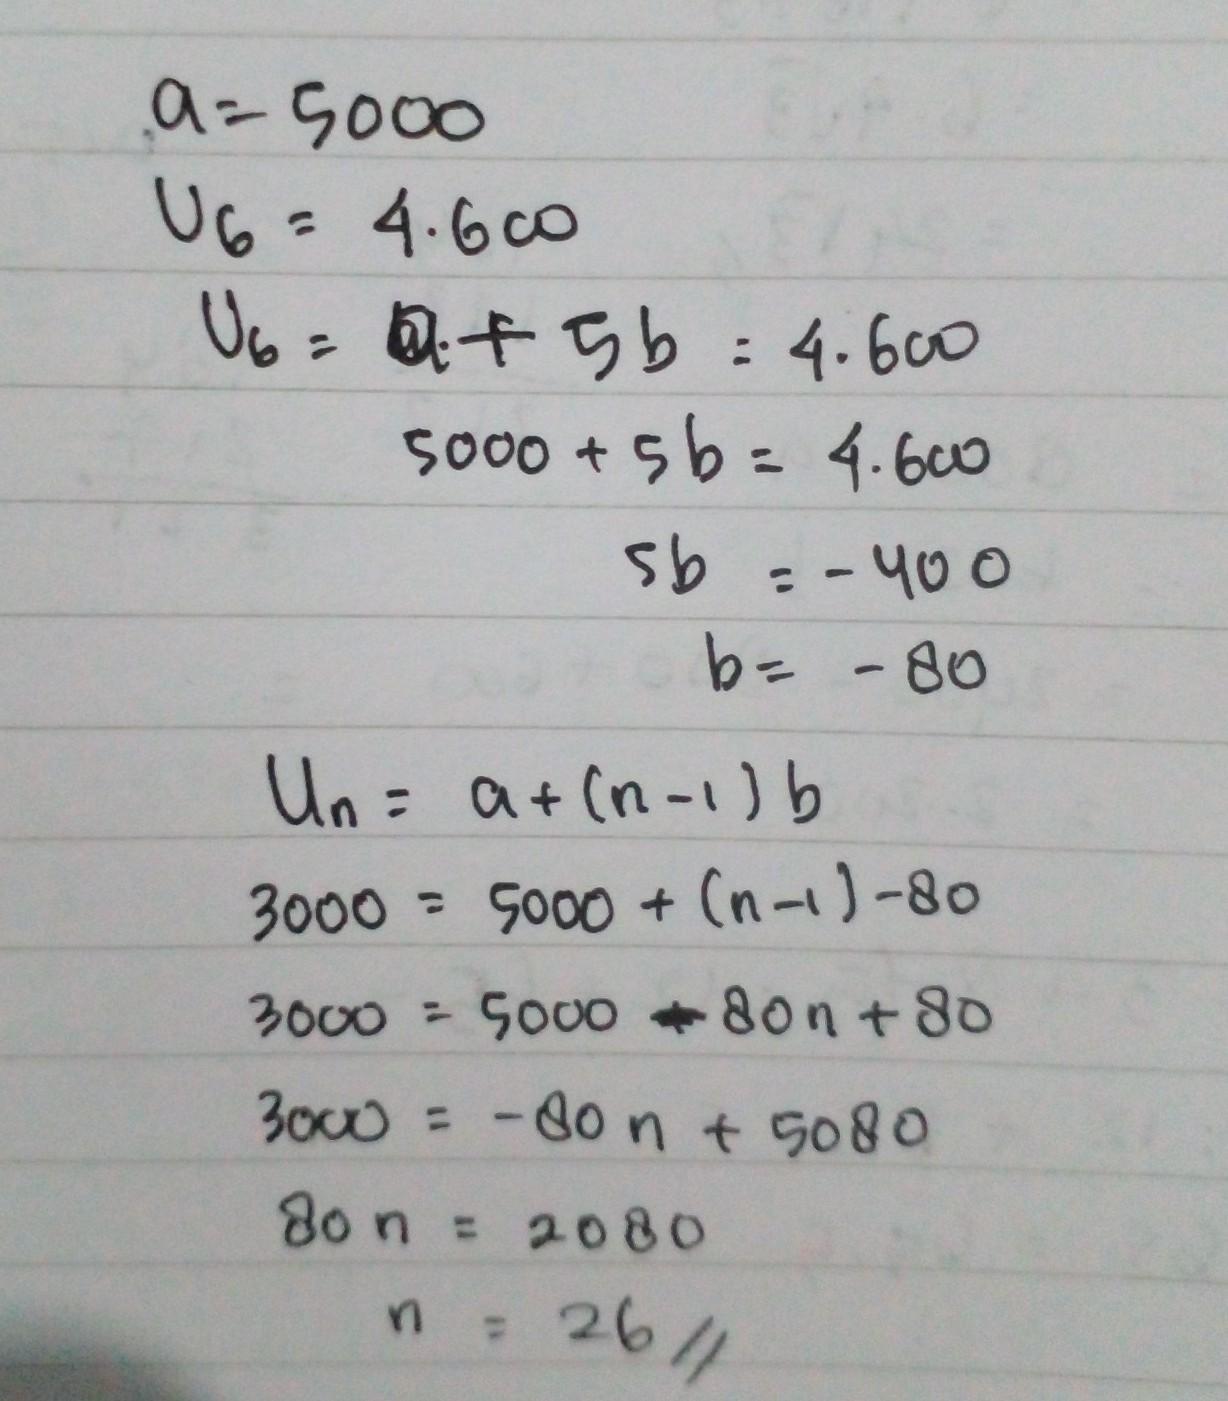 a = 5000
U6 = 4.600
U6 = a + 5b = 4.600
5000 + 5b = 4.600
5b = -400
b = -80
Un = a + (n-1) b
3000 = 5000 + (n-1) -80
3000 = 5000 - 80n + 80
3000 = -80n + 5080
80n = 2080
n = 26 //